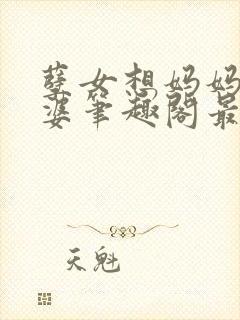 孽女相妈妈
婆笔趣阁最
天魁